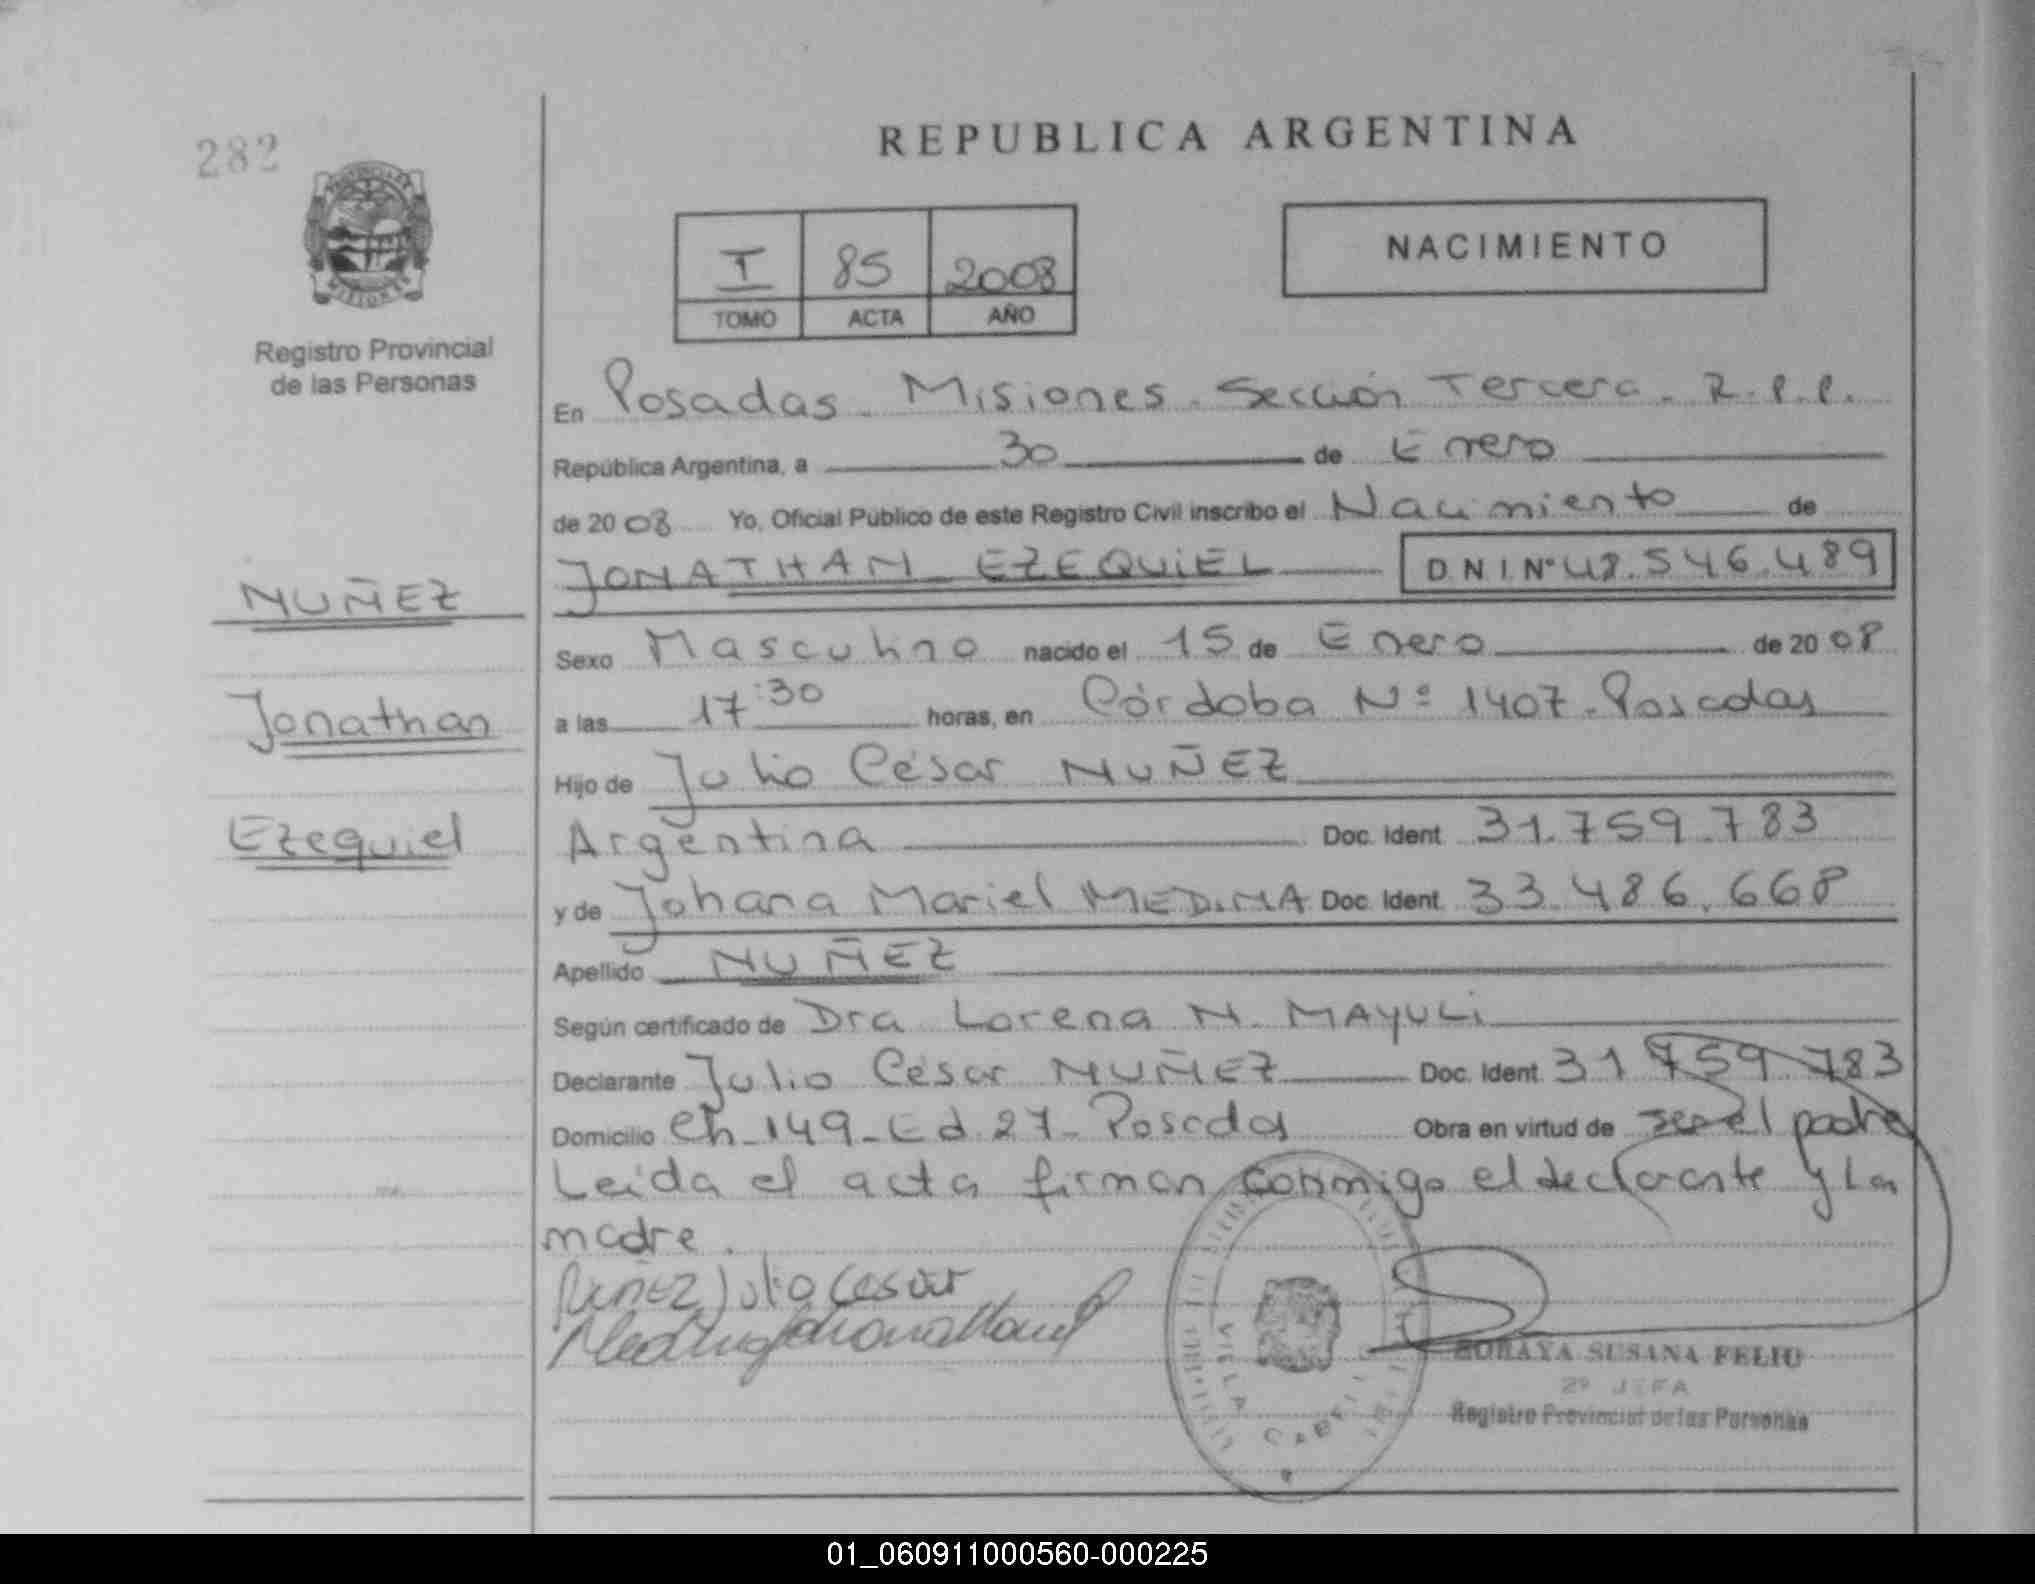 282
REPUBLICA ARGENTINA
PROVINCIA DE
MISIONES
Registro Provincial
de las Personas
I 85 2008
TOMO ACTA AÑO
NACIMIENTO
En Posadas. Misiones. Sección Tercera. R.P.P.
República Argentina, a 30 de Enero
de 2008 Yo, Oficial Público de este Registro Civil inscribo el Nacimiento de
JONATHAN EZEQUIEL D N I Nº 48.546.489
NUÑEZ
Sexo Masculino nacido el 15 de Enero de 2008
Jonathan
a las 17:30 horas, en Córdoba Nº 1407. Posadas
Hijo de Julio César NUÑEZ
Ezequiel
Argentina Doc. Ident. 31.759.783
y de Johana Mariel MEDINA Doc. Ident. 33.486.668
Apellido NUÑEZ
Según certificado de Dra Lorena N. MAYULI
Declarante Julio César NUÑEZ Doc. Ident. 31 759 783
Domicilio Ch-149-Ed 27-Posadas Obra en virtud de ser el padre
Leída el acta firman conmigo el declarante y la
madre.
Nuñez Julio Cesar
Medina Johana Mariel
VILLA CABELLO
SORAYA SUSANA FELIU
2º JEFA
Registro Provincial de las Personas
01_060911000560-000225